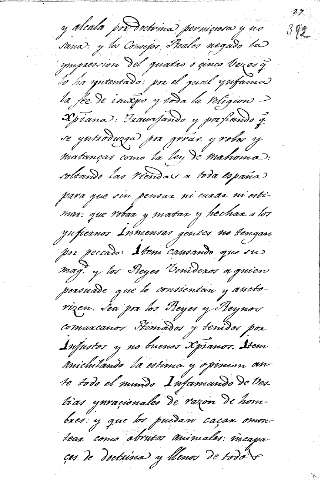 37
392
y alcala por doctrina perniçiosa y no
sana y los Consejos Reales negado la
ympression del quatro o cinco vezes q̃
lo ha yntentado: por el qual ynfama
la fee de iuxpo y toda la religion
xpiana: Jenerando y profiando q̃
se yntroduzga por gerras y robos y
matanças como la ley de mahoma:
soltando las riendas a toda españa
para que sin pensar ni curar ni esti-
mar: que robar y matar y hechar a los
ynfiernos Inmensas gentes no tengan
por peccado. Item causando que su
magd. y los Reyes Venideros a quien
persuade que lo consientan y aucto-
rizen. sea por los Reyes y Reynos
comarcanos Nomados y tenidos por
Injustos y no buenos xpianos. Item
anichilando la estima y opinion an-
te todo el mundo Infamando de bes-
tias yrracionales de razon de hom-
bres: y que los puedan caçar o mon-
tear como a brutos animales: incapa-
çes de doctrina y llenos de todos